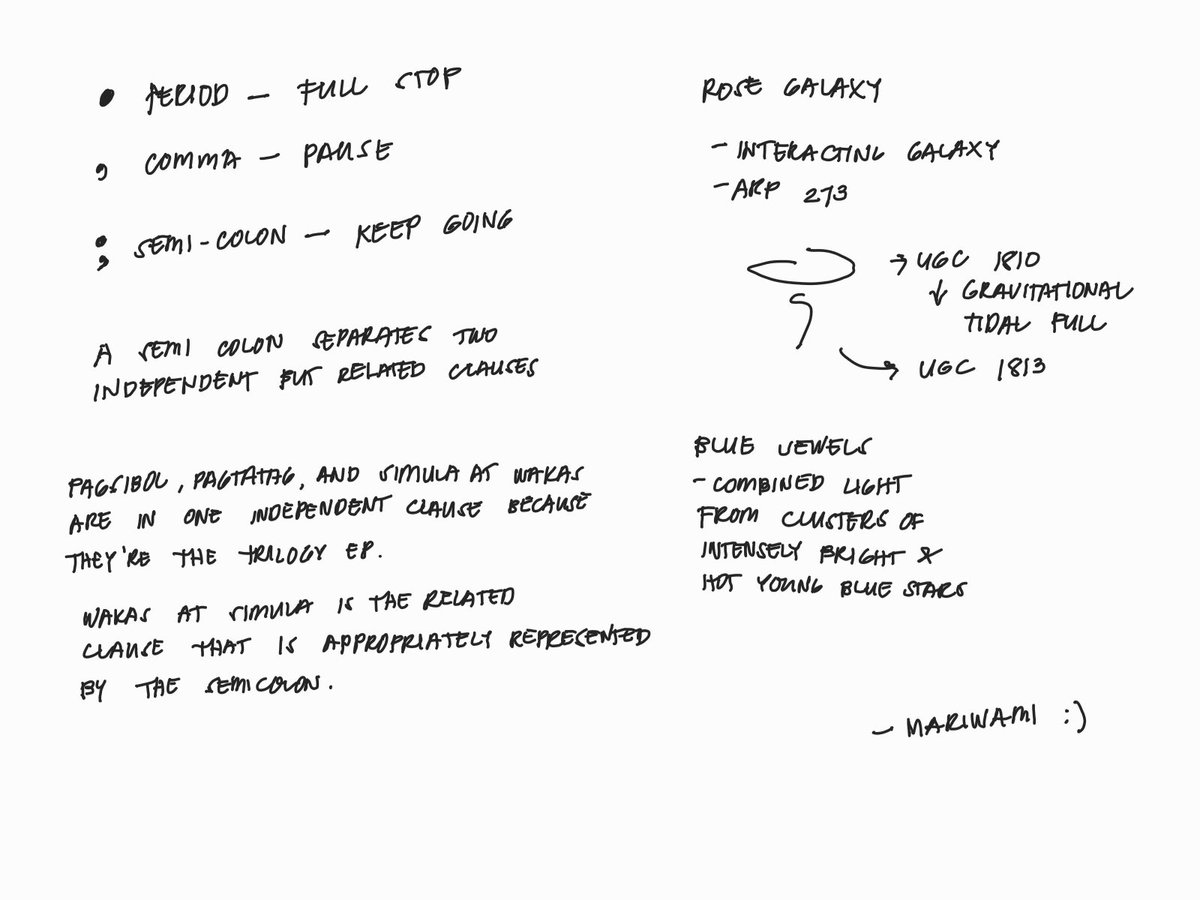 • PERIOD — FULL STOP
, COMMA — PAUSE
; SEMI-COLON — KEEP GOING
A SEMI COLON SEPARATES TWO
INDEPENDENT BUT RELATED CLAUSES
PAGSIBOL, PAGTATAG, AND SIMULA AT WAKAS
ARE IN ONE INDEPENDENT CLAUSE BECAUSE
THEY'RE THE TRILOGY EP.
WAKAS AT SIMULA IS THE RELATED
CLAUSE THAT IS APPROPRIATELY REPRESENTED
BY THE SEMICOLON.
ROSE GALAXY
- INTERACTING GALAXY
- ARP 273
→ UGC 1810
↓ GRAVITATIONAL
TIDAL PULL
→ UGC 1813
BLUE JEWELS
- COMBINED LIGHT
FROM CLUSTERS OF
INTENSELY BRIGHT &
HOT YOUNG BLUE STARS
— MARIWAMI :)